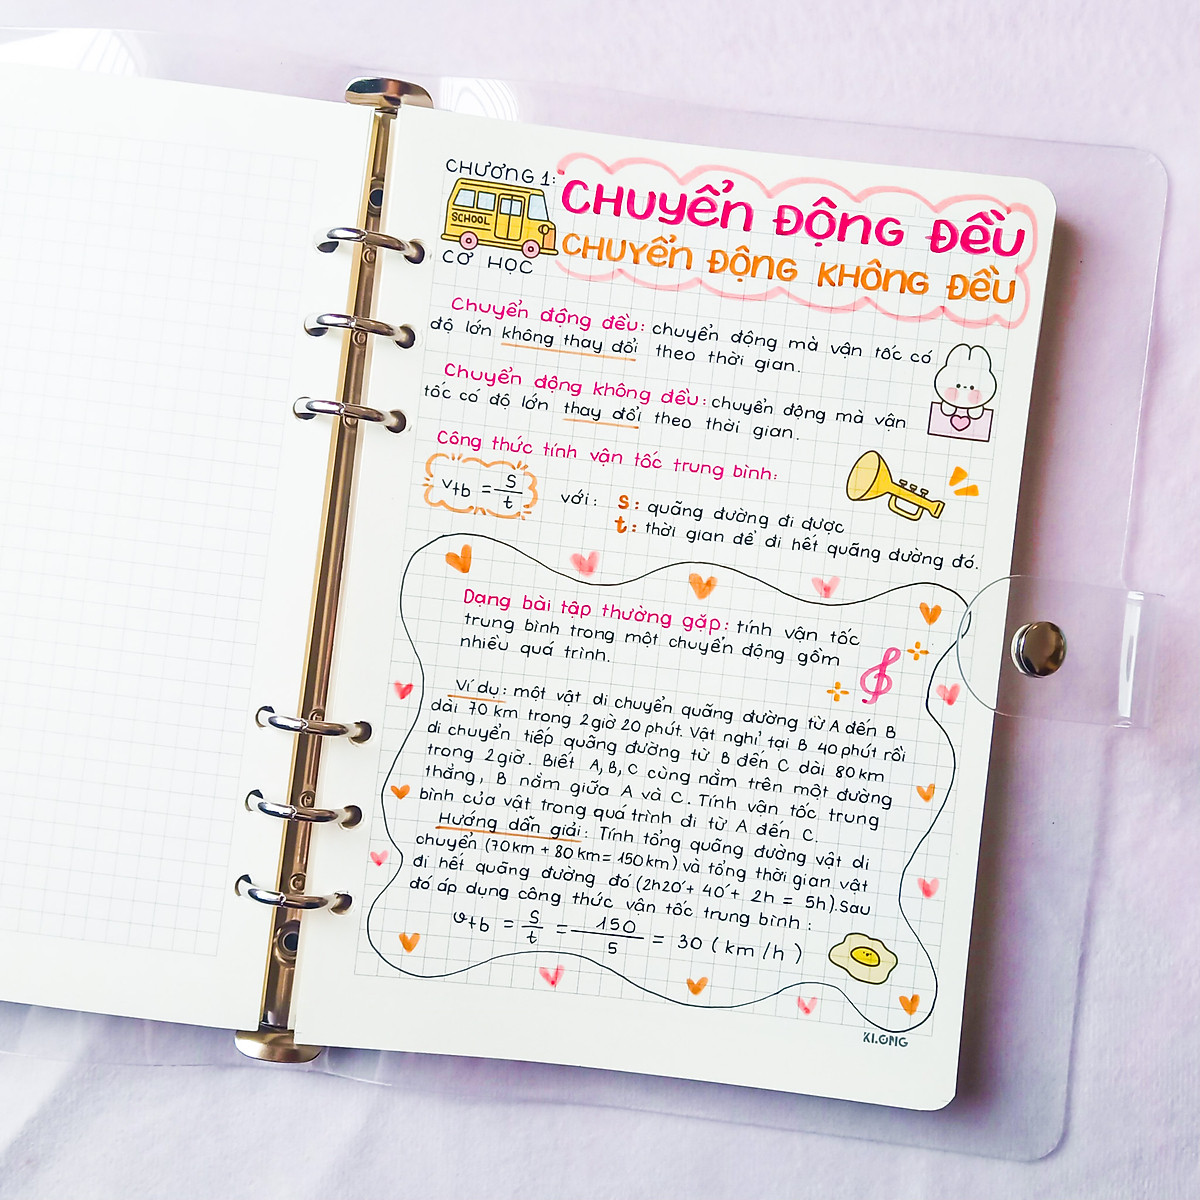 CHƯƠNG 1:
SCHOOL
CƠ HỌC
CHUYỂN ĐỘNG ĐỀU
CHUYỂN ĐỘNG KHÔNG ĐỀU
Chuyển động đều: chuyển động mà vận tốc có
độ lớn không thay đổi theo thời gian.
Chuyển động không đều: chuyển động mà vận
tốc có độ lớn thay đổi theo thời gian.
Công thức tính vận tốc trung bình:
vtb = s/t với: s: quãng đường đi được
t: thời gian để đi hết quãng đường đó.
Dạng bài tập thường gặp: tính vận tốc
trung bình trong một chuyển động gồm
nhiều quá trình.
Ví dụ: một vật di chuyển quãng đường từ A đến B
dài 70 km trong 2 giờ 20 phút. Vật nghỉ tại B 40 phút rồi
di chuyển tiếp quãng đường từ B đến C dài 80 km
trong 2 giờ. Biết A, B, C cùng nằm trên một đường
thẳng, B nằm giữa A và C. Tính vận tốc trung
bình của vật trong quá trình đi từ A đến C.
Hướng dẫn giải: Tính tổng quãng đường vật di
chuyển (70km + 80km = 150km) và tổng thời gian vật
đi hết quãng đường đó (2h20' + 40' + 2h = 5h). Sau
đó áp dụng công thức vận tốc trung bình:
vtb = s/t = 150/5 = 30 (km/h)
KLONG